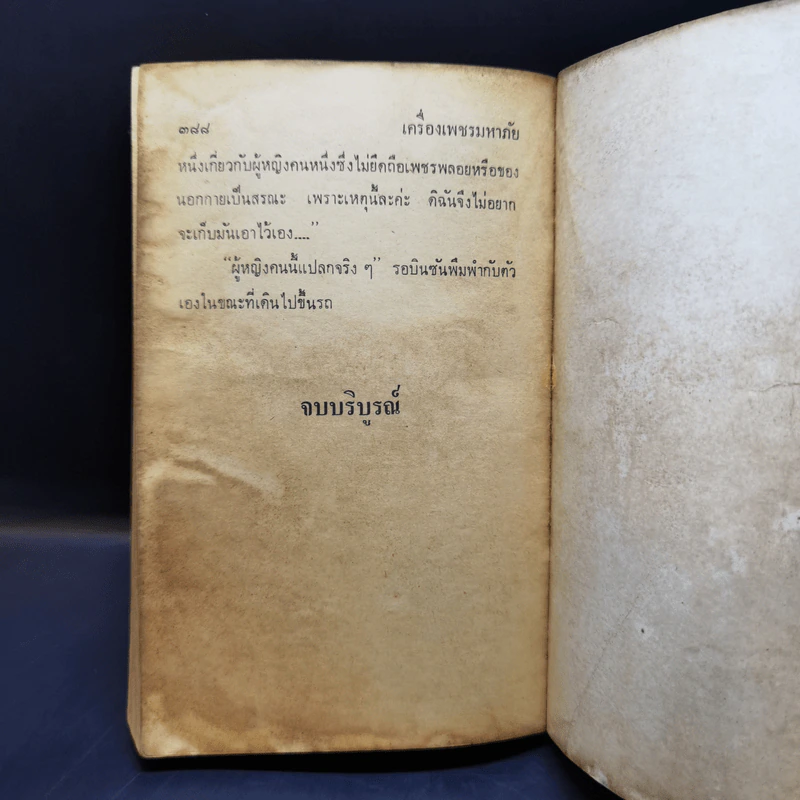 ๓๘๘ เครื่องเพชรมหาภัย
หนึ่งเกี่ยวกับผู้หญิงคนหนึ่งซึ่งไม่ยึดถือเพชรพลอยหรือของ
นอกกายเป็นสรณะ เพราะเหตุนี้ละค่ะ ดิฉันจึงไม่อยาก
จะเก็บมันเอาไว้เอง....”
“ผู้หญิงคนนี้แปลกจริง ๆ” รอบินซันพึมพำกับตัว
เองในขณะที่เดินไปขึ้นรถ
จบบริบูรณ์